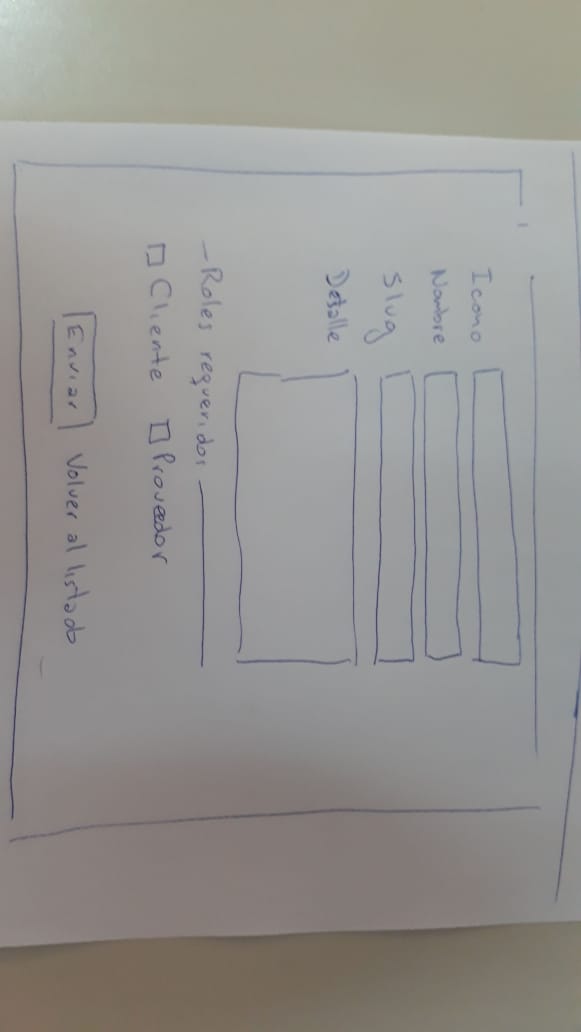 Icono
Nombre
Slug
Detalle
- Roles requeridos
Cliente Proveedor
Enviar Volver al listado